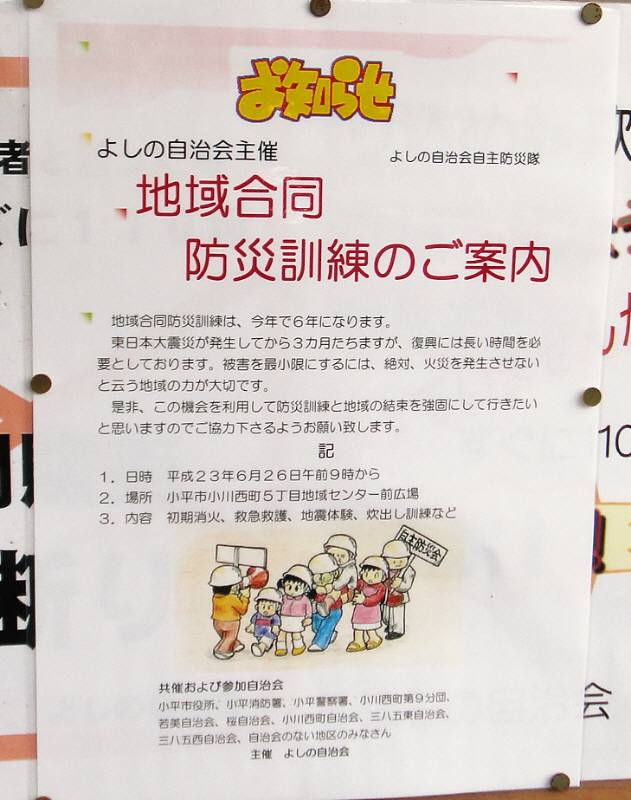 お知らせ
よしの自治会主催
よしの自治会自主防災隊
地域合同
防災訓練のご案内
地域合同防災訓練は、今年で6年になります。
東日本大震災が発生してから3カ月たちますが、復興には長い時間を必
要としております。被害を最小限にするには、絶対、火災を発生させない
と云う地域の力が大切です。
是非、この機会を利用して防災訓練と地域の結束を強固にして行きたい
と思いますのでご協力下さるようお願い致します。
記
1．日時　平成23年6月26日午前9時から
2．場所　小平市小川西町5丁目地域センター前広場
3．内容　初期消火、救急救護、地震体験、炊出し訓練など
自主防災会
共催および参加自治会
小平市役所、小平消防署、小平警察署、小川西町第9分団、
若美自治会、桜自治会、小川西町自治会、三八五東自治会、
三八五西自治会、自治会のない地区のみなさん
主催　よしの自治会
者
10
会